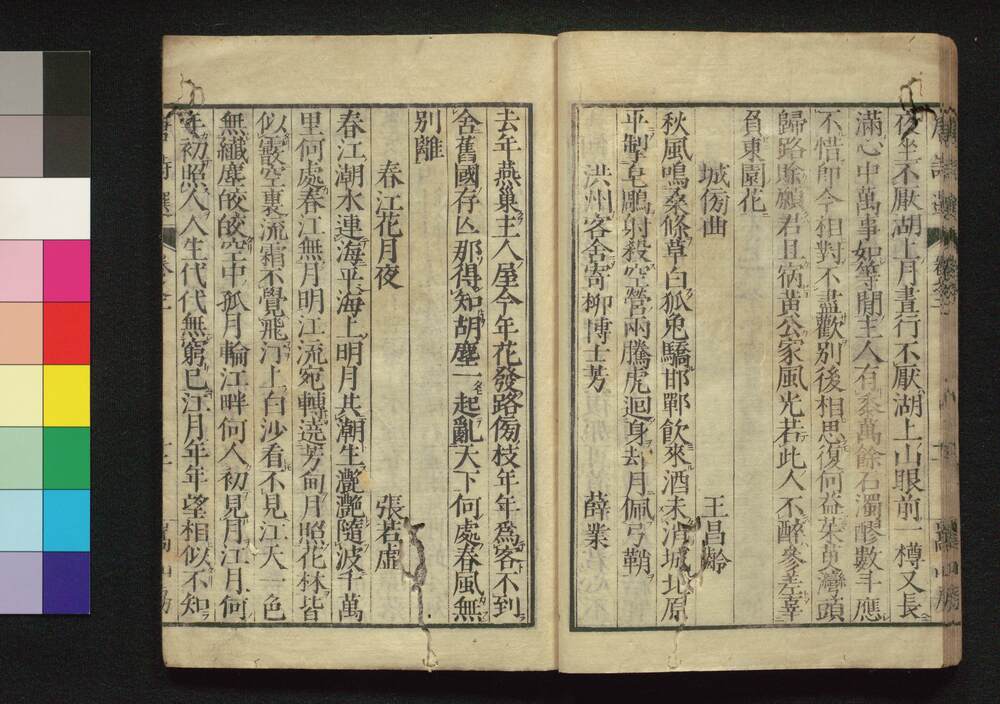 夜坐不厭湖上月晝行不厭湖上山眼前一樽又長
滿心中萬事如等閒主人有黍萬餘石濁醪數斗應
不惜即今相對不盡歡別後相思復何益茱萸灣頭
歸路賒願君且宿黃公家風光若此人不醉參差辜
負東園花
城傍曲
王昌齡
秋風鳴桑條草白狐兔驕邯鄲飲來酒未消城北原
平掣皂鵰射殺空營兩騰虎迴身去月佩弓鞘
洪州客舍寄柳博士芳
薛業
去年燕巢主人屋今年花發路傍枝年年爲客不到
舍舊國存亾那得知胡塵一起亂天下何處春風無
別離
春江花月夜
張若虛
春江潮水連海平海上明月共潮生灩灩隨波千萬
里何處春江無月明江流宛轉遶芳甸月照花林皆
似霰空裏流霜不覺飛汀上白沙看不見江天一色
無纖塵皎皎空中孤月輪江畔何人初見月江月何
年初照人人生代代無窮已江月年年望相似不知
唐詩選